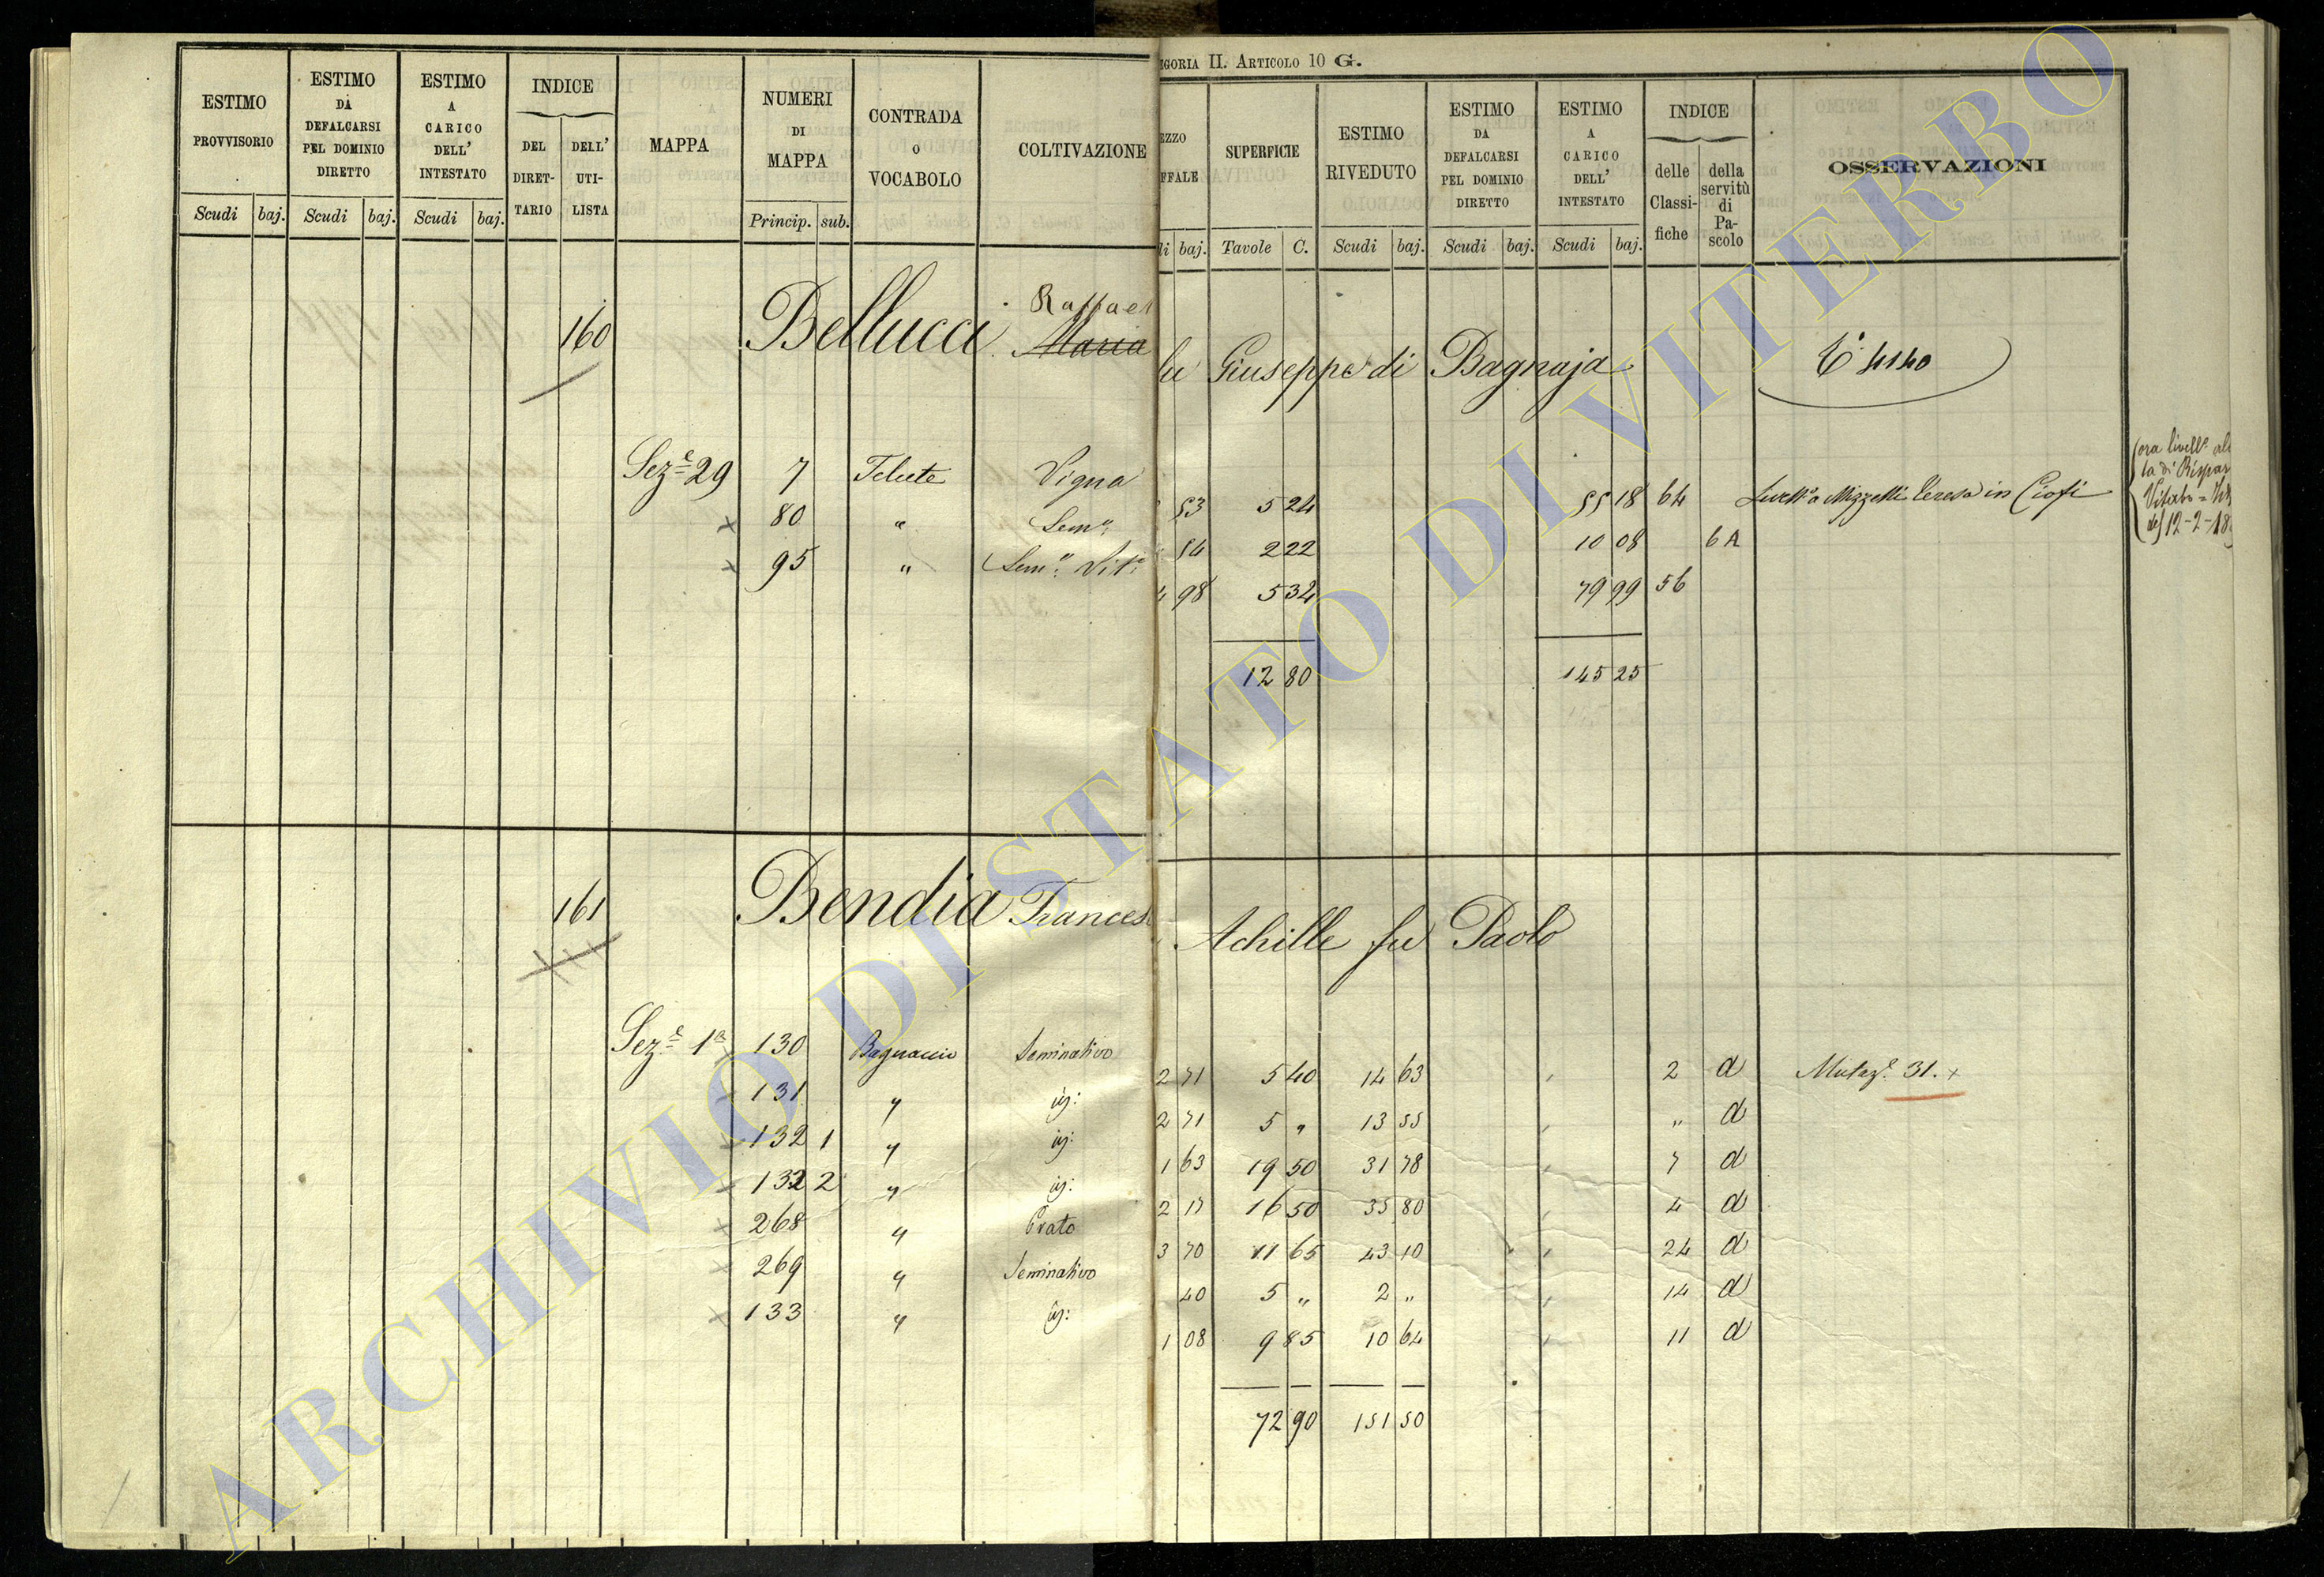 ESTIMO PROVVISORIO
Scudi baj.
ESTIMO DA DEFALCARSI PEL DOMINIO DIRETTO
Scudi baj.
ESTIMO A CARICO DELL' INTESTATO
Scudi baj.
INDICE
DEL DIRETTARIO
DELL' UTILISTA
MAPPA
NUMERI DI MAPPA
Princip. sub.
CONTRADA O VOCABOLO
COLTIVAZIONE
GORIA II. ARTICOLO 10 G.
EZZO
FFALE
li baj.
SUPERFICIE
Tavole C.
ESTIMO RIVEDUTO
Scudi baj.
ESTIMO DA DEFALCARSI PEL DOMINIO DIRETTO
Scudi baj.
ESTIMO A CARICO DELL' INTESTATO
Scudi baj.
INDICE
delle Classifiche
della servitù di Pascolo
OSSERVAZIONI
160 Bellucci Maria fu Giuseppe di Bagnaja
Raffael
4140
Sez.e 29 7 Vigna 53 5 24 55 18 64 a Mizzelli Teresa in Ciofi
80 " Sem.o 54 2 22 10 08 6 A
95 " Sem.o Vit.o 98 5 34 79 99 56
12 80 145 25
ora livell.
12-2-18
161 Bendia Frances Achille fu Paolo
Sez.e 1a 130 Bagnaccio Seminativo 2 71 5 40 14 63 2 d Mutaz.e 31. x
131 " 2 71 5 " 13 55 " d
132 1 " 1 63 19 50 31 78 7 d
132 2 " 2 17 16 50 35 80 4 d
268 " Prato 3 70 11 65 43 10 24 d
269 " Seminativo 40 5 " 2 " 14 d
133 " 1 08 9 85 10 64 11 d
72 90 151 50
ARCHIVIO DI STATO DI VITERBO